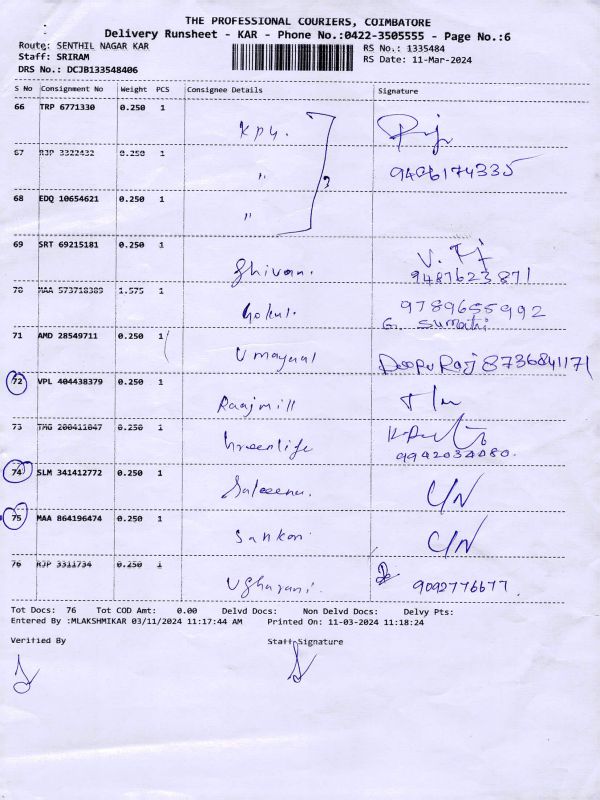 THE PROFESSIONAL COURIERS, COIMBATORE
Delivery Runsheet - KAR - Phone No.:0422-3505555 - Page No.:6
Route: SENTHIL NAGAR KAR
RS No.: 1335484
Staff: SRIRAM
RS Date: 11-Mar-2024
DRS No.: DCJB133548406
S No Consignment No Weight PCS Consignee Details Signature
66 TRP 6771330 0.250 1 KPY.
67 RJP 3322432 0.250 1 " 9406174335
68 EDQ 10654621 0.250 1 "
69 SRT 69215181 0.250 1 Shivani. 9487623871
70 MAA 573718389 1.575 1 Gokul. 9789655992
G. Sumathi
71 AMD 28549711 0.250 1 Umayaal Deepu Raj 8736841171
72 VPL 404438379 0.250 1 Raajmill
73 TMG 200411047 0.250 1 Greenlife
9942034080.
74 SLM 341412772 0.250 1 C/N
75 MAA 864196474 0.250 1 Sankari C/N
76 RJP 3311734 0.250 1 9092776677.
Tot Docs: 76 Tot COD Amt: 0.00 Delvd Docs: Non Delvd Docs: Delvy Pts:
Entered By :MLAKSHMIKAR 03/11/2024 11:17:44 AM Printed On: 11-03-2024 11:18:24
Verified By Staff Signature